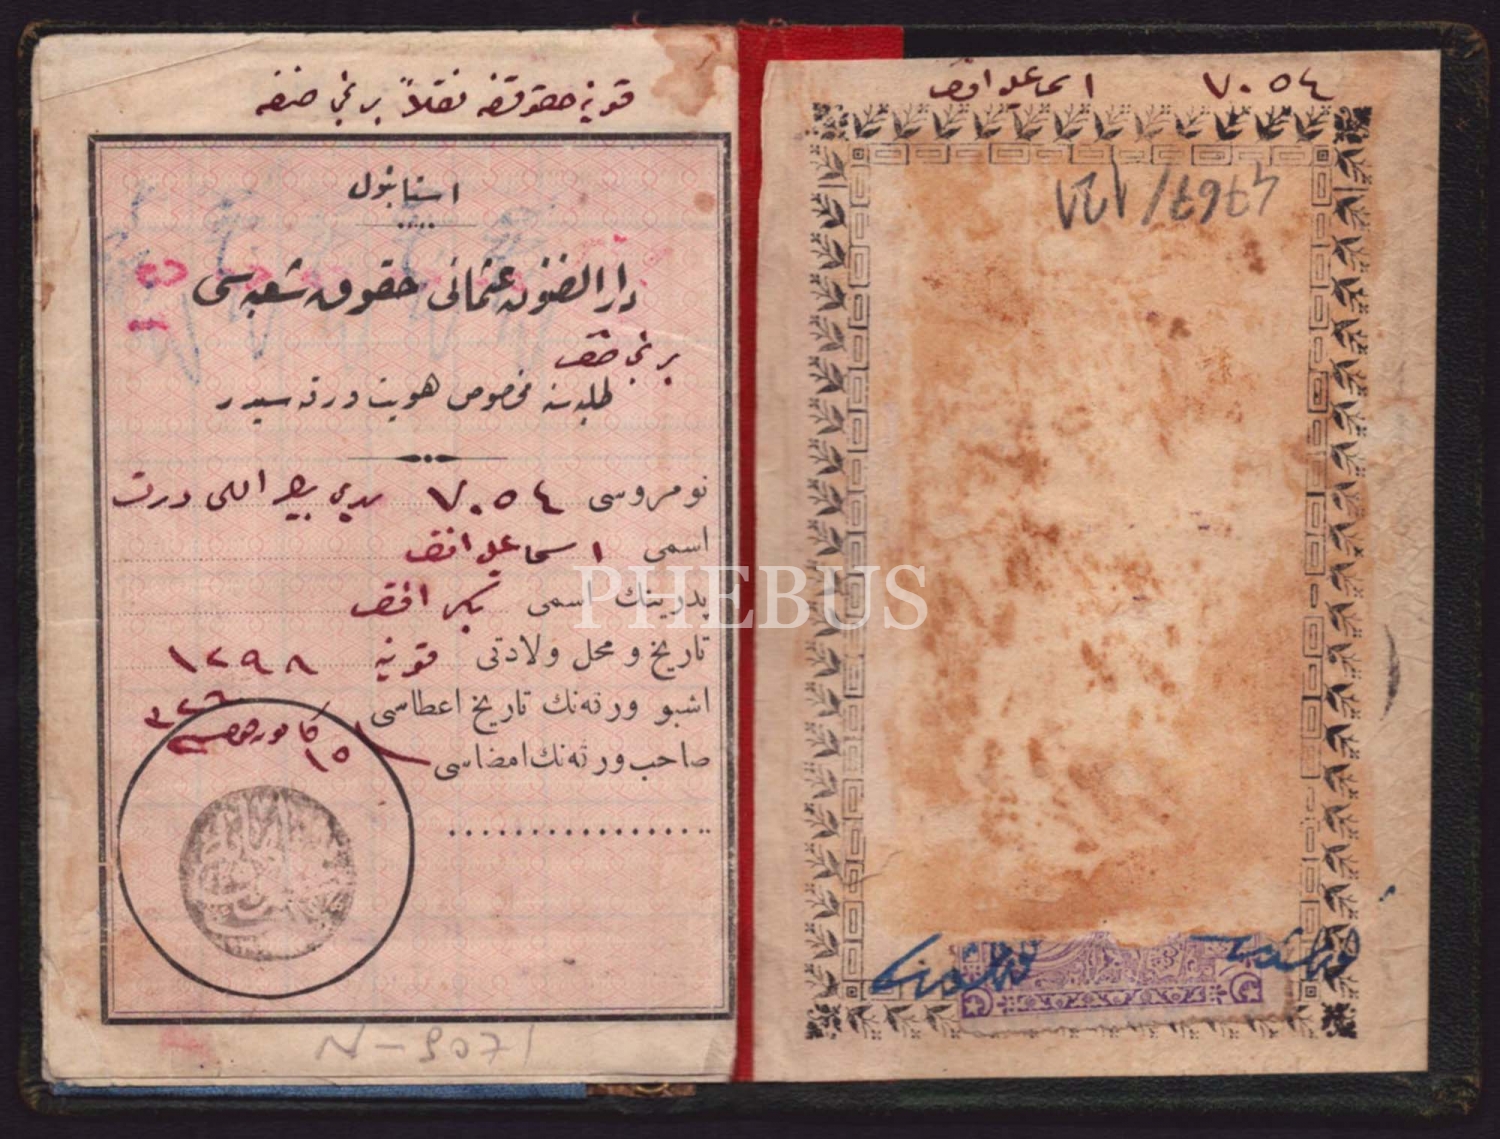 قونیه حقوقندن نقلاً برنجی صنفه
استانبول
دار الفنون عثمانی حقوق شعبه سی
برنجی صنف
طلبه سنه مخصوص هویت ورقه سیدر
نومروسی ٧٠٥٤ یدی بیڭ اللی درت
اسمی اسماعیل افندی
پدرینك اسمی بكر افندی
تاریخ و محل ولادتی قونیه ١٢٩٨
اشبو ورقه نك تاریخ اعطاسی
١٥ كانون
صاحب ورقه نك امضاسی
N-9071
٧٠٥٤ اسماعیل افندی
PHEBUS